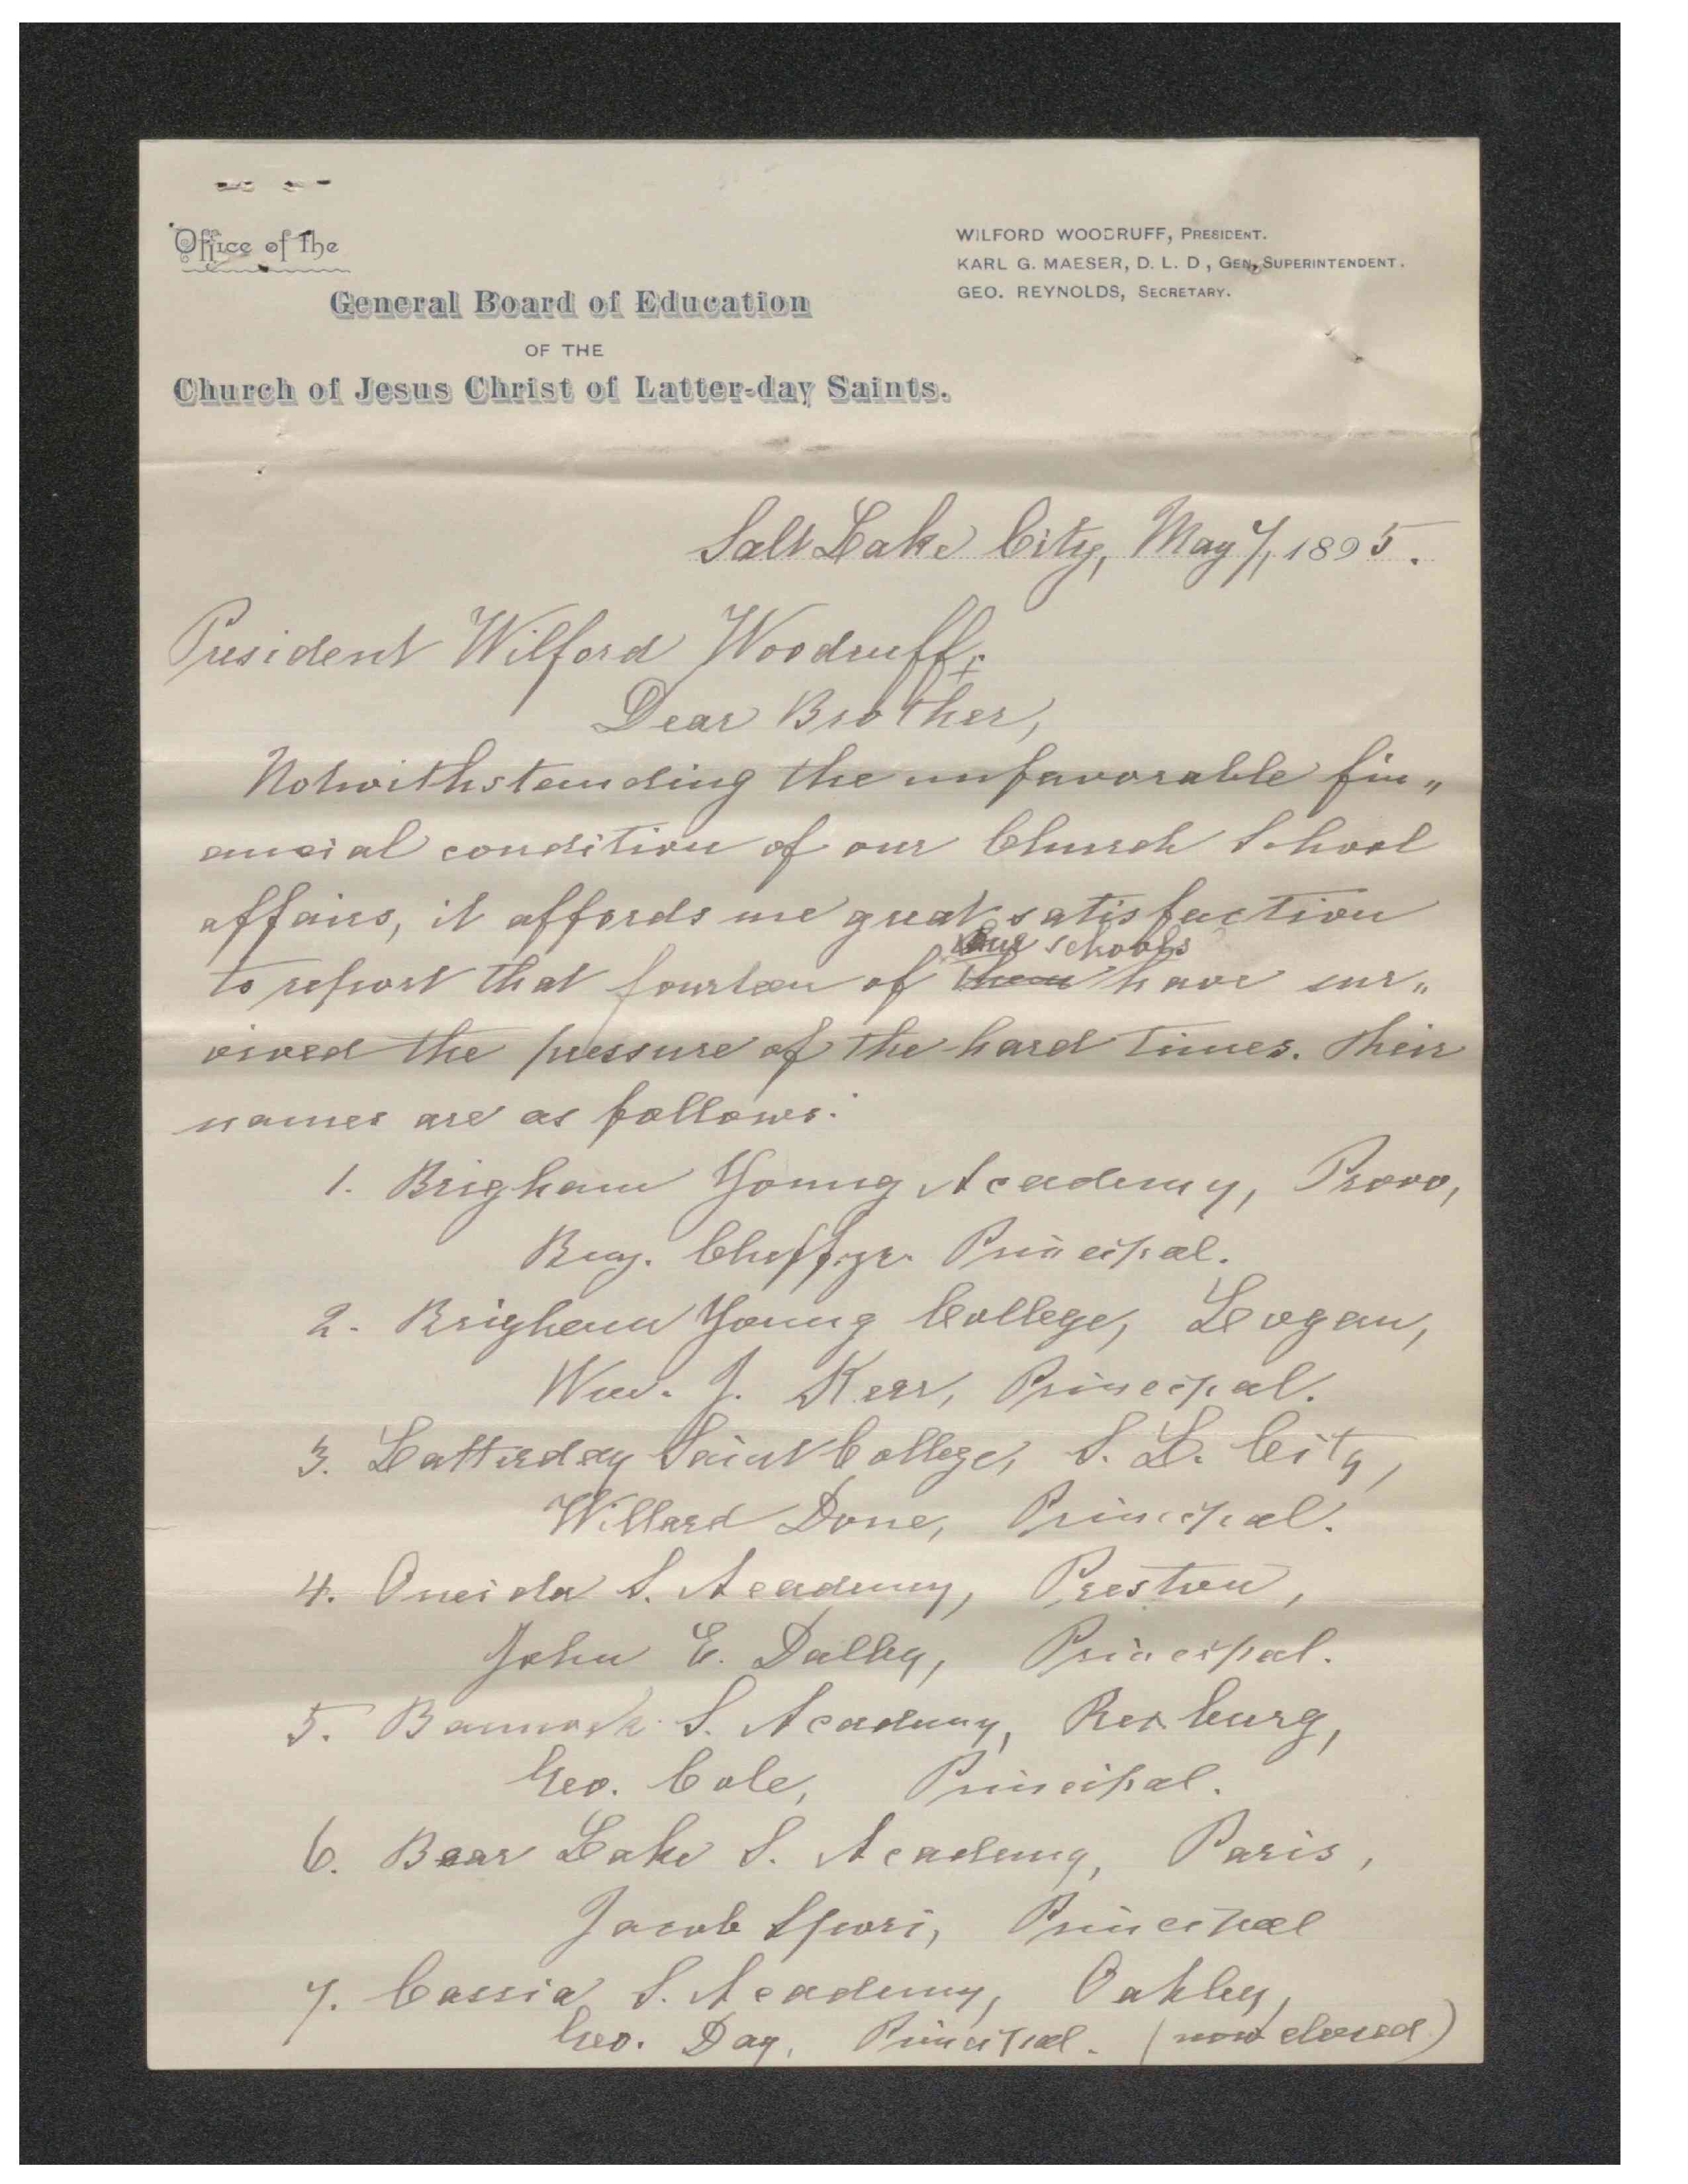 Office of the
General Board of Education
OF THE
Church of Jesus Christ of Latter-day Saints.
WILFORD WOODRUFF, PRESIDENT.
KARL G. MAESER, D. L. D, GEN. SUPERINTENDENT.
GEO. REYNOLDS, SECRETARY.
Salt Lake City, May 7, 1895.
President Wilford Woodruff,
Dear Brother,
Notwithstanding the unfavorable fin„
ancial condition of our Church School
affairs, it affords me great satisfaction
our schools
to report that fourteen of them have sur„
vived the pressure of the hard times. Their
names are as follows:
1. Brigham Young Academy, Provo,
Benj. Cluff. jr. Principal.
2. Brigham Young College, Logan,
Wm. J. Kerr, Principal.
3. Latterday Saint College, S. L. City,
Willard Done, Principal.
4. Oneida S. Academy, Preston,
John E. Dalley, Principal.
5. Bannock S. Academy, Rexburg,
Geo. Cole, Principal.
6. Bear Lake S. Academy, Paris,
Jacob Spori, Principal
7. Cassia S. Academy, Oakley,
Geo. Day, Principal. (now closed)